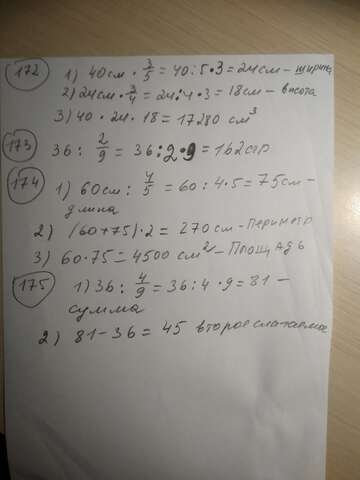 172
1) 40см · 3/5 = 40:5·3 = 24см – ширина
2) 24см · 3/4 = 24:4·3 = 18см – высота
3) 40 · 24 · 18 = 17280 см³
173
36 : 2/9 = 36:2·9 = 162стр
174
1) 60см : 4/5 = 60:4·5 = 75см –
длина
2) (60+75)·2 = 270см – Периметр
3) 60·75 = 4500 см² – Площадь
175
1) 36 : 4/9 = 36:4·9 = 81 –
сумма
2) 81–36 = 45 второе слагаемое